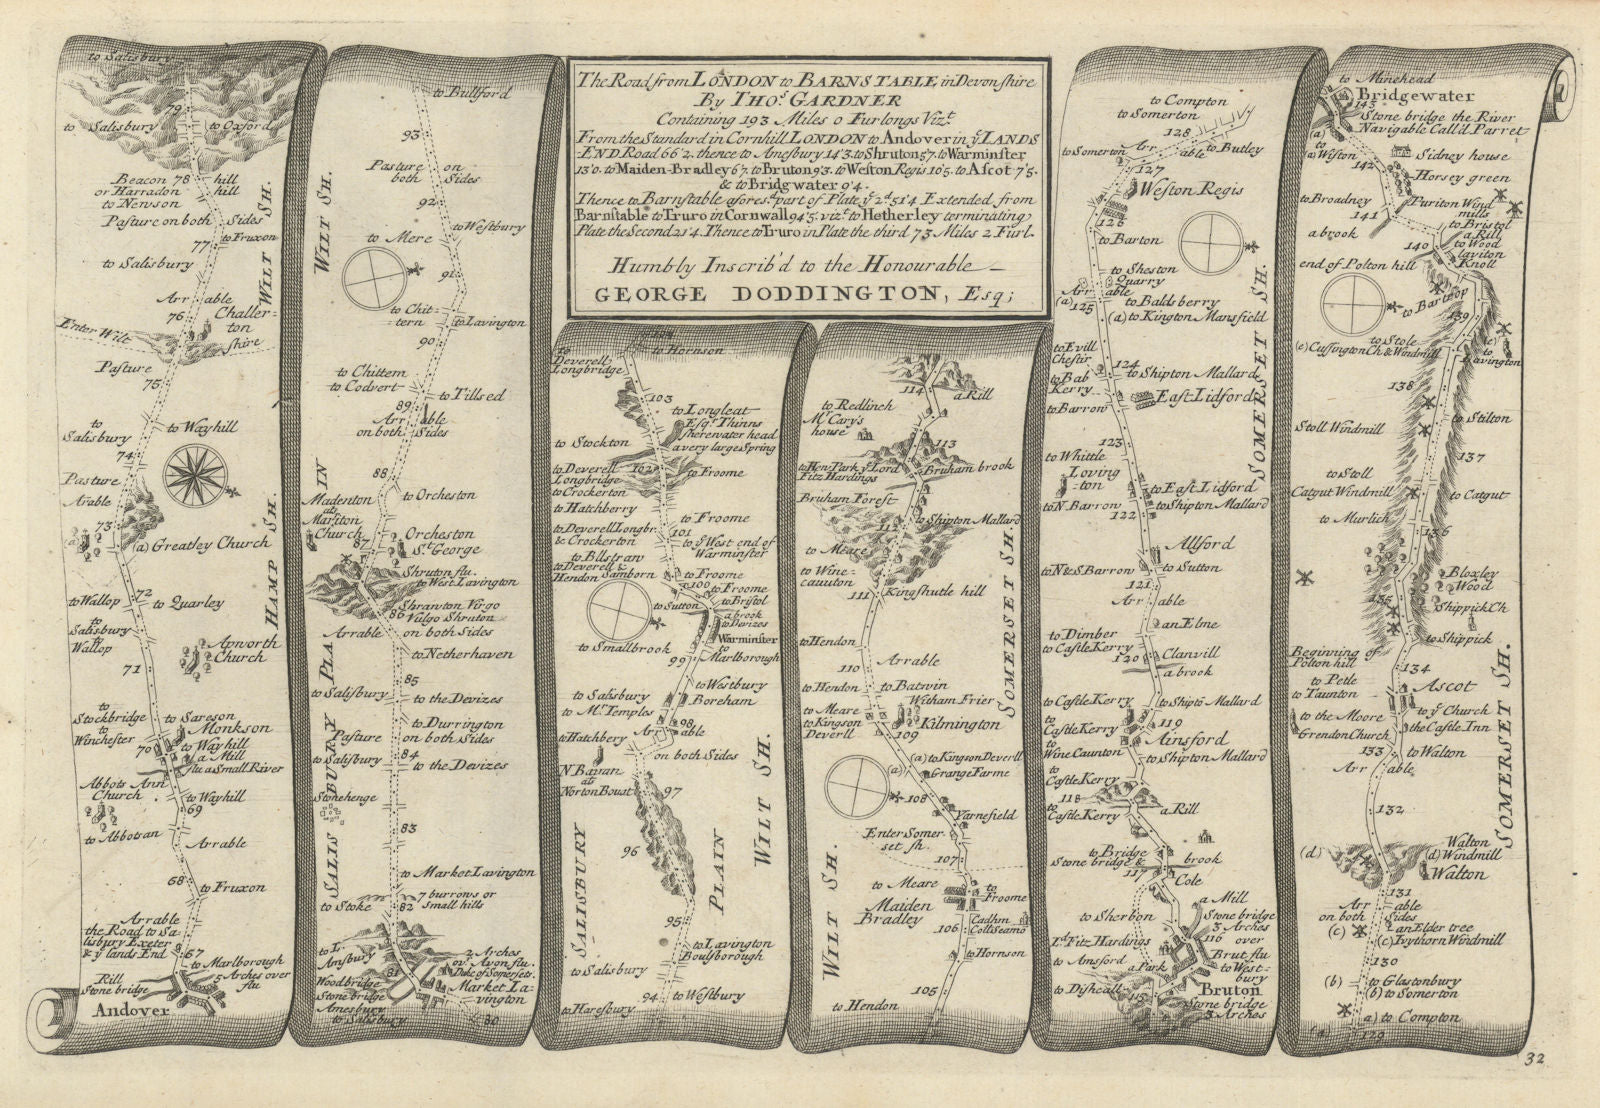 The Road from LONDON to BARNSTABLE in Devonshire
By THOS. GARDNER
Containing 193 Miles 0 Furlongs Vizt.
From the Standard in Cornhill LONDON to Andover in ye LANDS
END Road 66'2. thence to Amesbury 14'3. to Shruton 5'7. to Warminster
13'0. to Maiden-Bradley 6'7. to Bruton 9'3. to Weston Regis 10'5. to Ascot 7'5.
& to Bridgwater 9'4.
Thence to Barnstable afores.d part of Plate ye 2d. 51'4 Extended from
Barnstable to Truro in Cornwall 94'5. vizt. to Hetherley terminating
Plate the Second 21'4. Thence to Truro in Plate the third 73 Miles 2 Furl.
Humbly Inscrib'd to the Honourable
GEORGE DODDINGTON, Esq;
to Salisbury
79
to Salisbury
to Oxford
Beacon 78 hill
or Harradon hill
to Newson
Pasture on both Sides
WILT SH.
77
to Fruxon
to Salisbury
Arrable
76
Challerton
Enter Wilt shire
Pasture
75
to Salisbury
to Wayhill
74
Pasture
Arable
73
(a)
(a) Greatley Church
HAMP SH.
72
to Wallop
to Quarley
to Salisbury
to Wallop
Apworth Church
71
to Stockbridge
to Winchester
to Sareson
Monkson
70
to Wayhill
a Mill
flu a Small River
Abbots Ann Church
to Wayhill
69
to Abbotsan
Arrable
68
to Fruxon
Arrable
the Road to Salisbury Exeter
& ye lands End
67
to Marlborough
Rill
Stone bridge
5 Arches over flu
Andover
to Bullford
93
Pasture on both Sides
WILT SH.
92
to Westbury
to Mere
91
to Chittern
to Lavington
90
to Chittem
to Codvert
to Tillsed
89
Arrable on both Sides
88
to Orcheston
Madenton at Mariton Church
87
Orcheston St. George
Shruton flu.
to West Lavington
Shrawton Virgo
Vulgo Shruton
86
Arrable on both Sides
to Netherhaven
85
to Salisbury
to the Devizes
to Durrington
Pasture on both Sides
84
to Salisbury
to the Devizes
Stonehenge
83
SALISBURY PLAIN
to Market Lavington
7 burrows or Small hills
to Stoke
82
to L. Amsbury
2 Arches ov. Avon flu.
Duke of Somersets
81
Woodbridge
Stone bridge
Market Lavington
Amesbury
to Salisbury
80
104
to Deverell Longbridge
to Hornson
103
to Longleat
Esqr. Thinns
here water head
a very large Spring
to Stockton
102
to Deverell Longbridge
to Froome
to Crockerton
to Hatchberry
to Deverell Longbr.
& Crockerton
to Froome
101
to ye West end of Warminster
to Bllstraw
to Deverell &
Hendon Samborn
to Froome
100
to Froome
to Bristol
to Sutton
a brook
to Devizes
Warminster
to Smallbrook
99
to Marlborough
to Westbury
to Salisbury
Boreham
to Mr. Temples
98
Arrable on both Sides
to Hatchbery
N Bavan at Norton Bovat
97
96
SALISBURY PLAIN
WILT SH.
95
to Lavington
Boulsborough
to Salisbury
94
to Westbury
to Haresbury
114
a Rill
to Redlinch
Mr. Cary's house
113
to Hon. Park ye Lord
Fitz Hardings
Bruham brook
Bruham Forest
112
to Shipton Mallard
to Meare
to Winecaunton
111
Kingshutle hill
SOMERSET SH.
to Hendon
110
Arrable
to Hendon
to Batwin
to Meare
to Kingson Deverll
Witham Frier
Kilmington
109
(a) to Kingson Deverll
(a)
Grange Farme
108
Yarnefield
Enter Somerset sh.
107
WILT SH.
to Meare
to Froome
Maiden Bradley
106
Cadhm
Colt Seamo
to Hornson
105
to Hendon
to Compton
to Somerton
128
Arrable
to Somerton
to Butley
127
Weston Regis
126
to Barton
to Sheston
Quarry
Arrable
(a)
125
to Baldsberry
(a) to Kington Mansfield
to Evill Chestir
124
to Shipton Mallard
to Bab Kerry
East Lidford
to Barrow
SOMERSET SH.
123
to Whittle
Lovington
to East Lidford
to N. Barrow
122
to Shipton Mallard
Allford
to N & S. Barrow
to Sutton
121
Arrable
an Elme
to Dimber
to Castle Kerry
120
Clanvill
a brook
to Castle Kerry
to Shipto Mallard
to Castle Kerry
119
to Wine Caunton
Ainsford
to Castle Kerry
to Shipton Mallard
118
a Rill
to Castle Kerry
to Bridge
Stone bridge &
brook
117
Cole
a Mill
to Sherbon
Stone bridge
3 Arches over
Brut flu
116
Ld. Fitz Hardings
to Amsford
a Park
to Westbury
to Dishcall
115
Bruton
Stone bridge
3 Arches
to Minehead
Bridgewater
143
Stone bridge the River
Navigable Call'd Parret
(a)
(a) Weston
142
Sidney house
Horsey green
to Broadney
141
Puriton Wind mills
to Bristol
a brook
140
a Rill
to Wood laviton
Knoll
end of Polton hill
to Bartrop
139
to Stole
(e) Cussington Ch & Windmill
(e)
to Lavington
138
Stoll Windmill
to Stilton
137
to Stoll
Catgut Windmill
to Catgut
to Murlich
136
Bloxley Wood
Shippick Ch
135
to Shippick
Beginning of Polton hill
134
to Petle
to Taunton
Ascot
to ye Church
to the Moore
the Castle Inn
Grendon Church
133
to Walton
Arrable
132
SOMERSET SH.
(d)
Walton
(d) Windmill
Walton
131
Arrable on both Sides
(c)
an Elder tree
(c) Ivythorn Windmill
130
(b)
to Glastonbury
(b) to Somerton
a) to Compton
(a
129
32